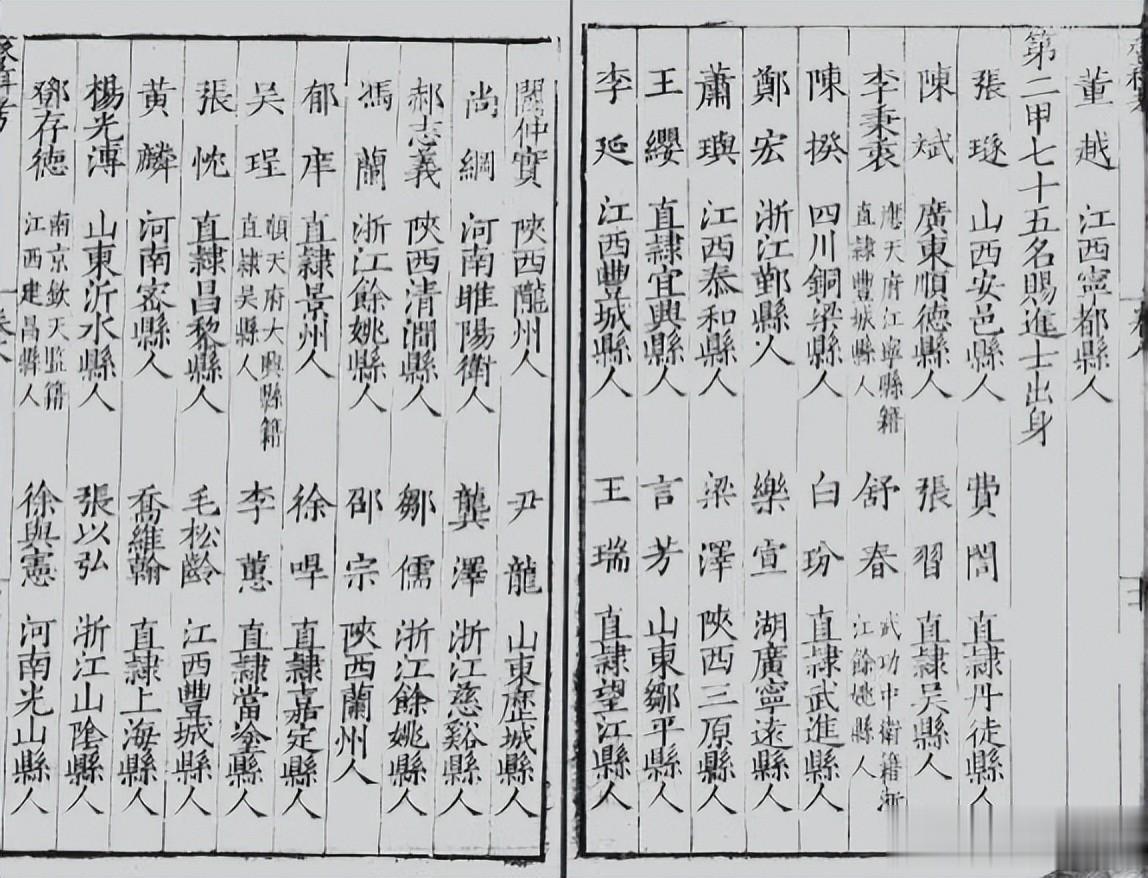 董越 江西寧都縣人
第二甲七十五名賜進士出身
張璲 山西安邑縣人 費誾 直隸丹徒縣人
陳斌 廣東順德縣人 張習 直隸吳縣人
李秉衷 應天府江寧縣籍直隸豐城縣人 舒春 武功中衛籍浙江餘姚縣人
陳揆 四川銅梁縣人 白玢 直隸武進縣人
鄭宏 浙江鄞縣人 樂宣 湖廣寧遠縣人
蕭璵 江西泰和縣人 梁澤 陝西三原縣人
王纓 直隸宜興縣人 言芳 山東鄒平縣人
李延 江西豐城縣人 王瑞 直隸望江縣人
關仲實 陝西隴州人 尹龍 山東歷城縣人
尚綱 河南睢陽衛人 龔澤 浙江慈谿縣人
郝志義 陝西清澗縣人 鄒儒 浙江餘姚縣人
馮蘭 浙江餘姚縣人 邵宗 陝西蘭州人
郁庠 直隸景州人 徐㫤 直隸嘉定縣人
吳珵 順天府大興縣籍直隸吳縣人 李蕙 直隸當塗縣人
張忱 直隸昌黎縣人 毛松齡 江西豐城縣人
黃麟 河南密縣人 喬維翰 直隸上海縣人
楊光溥 山東沂水縣人 張以弘 浙江山陰縣人
鄧存德 南京欽天監籍江西建昌縣人 徐與憲 河南光山縣人